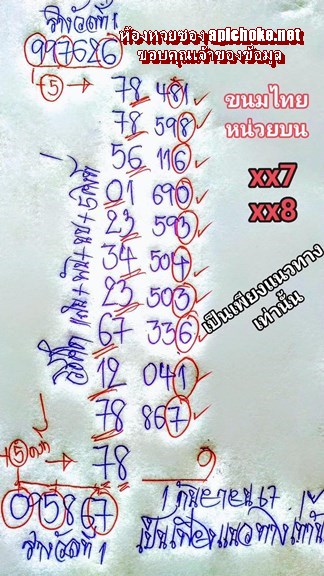 รางวัลที่ 1
ห้องหวยซอง apichoke.net
ขอบคุณเจ้าของข้อมูล
997626
+5 → 78 481
78 598
56 116
01 690
23 593
34 504
23 503
67 336
12 041
78 867
+5 → 78
095867
ขนมไทย
หน่วยบน
xx7
xx8
เป็นเพียงแนวทาง
เท่านั้น
1 กันยายน 67
รางวัลที่ 1
เป็นเพียงแนวทางเท่านั้น